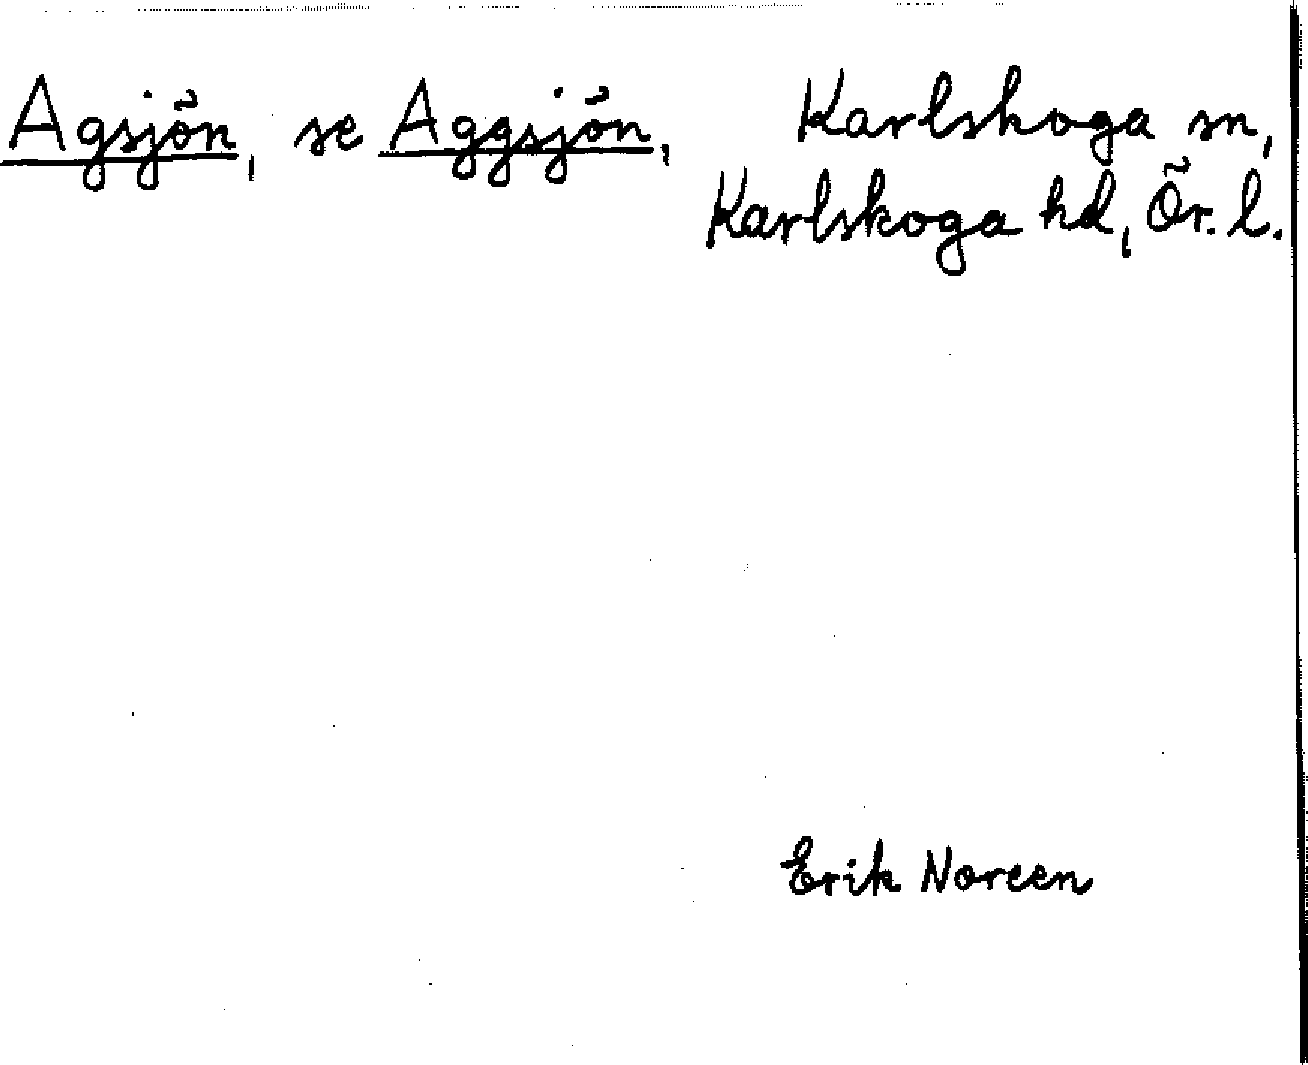 Agsjön, se Aggsjön, Karlskoga sn,
Karlskoga hd, Ör. l.
Erik Noreen